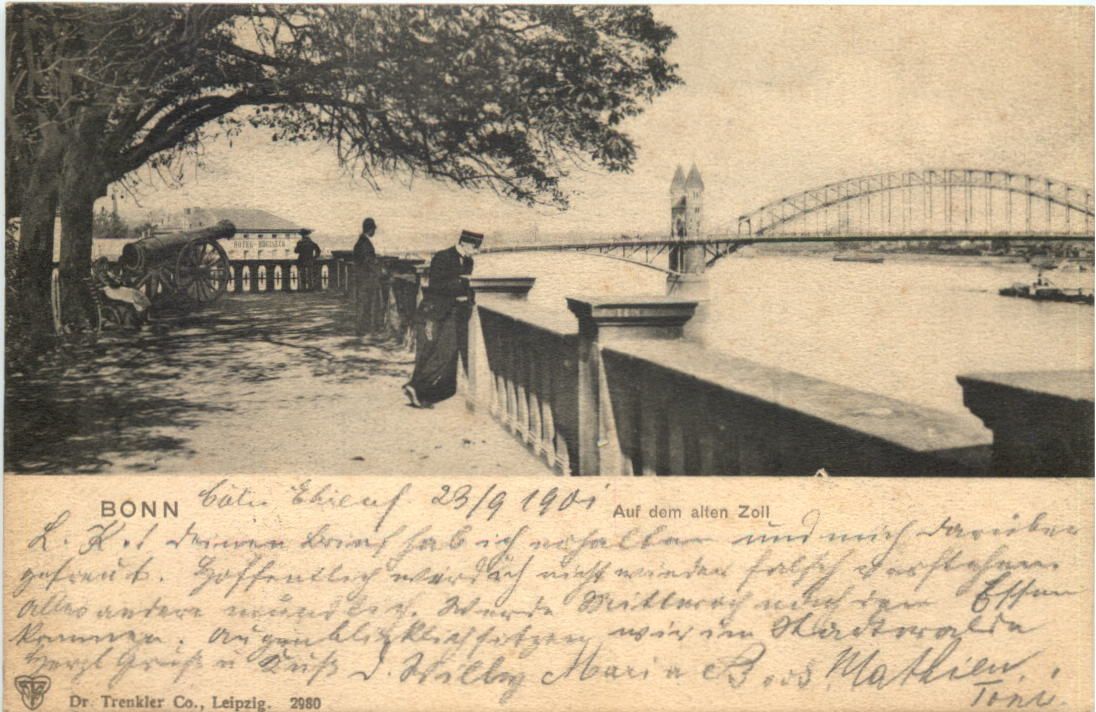 HOTEL
BONN Cöln Ehrenf 23/9 1901 Auf dem alten Zoll
L. K.! Deinen Brief hab ich erhalten und mich darüber
gefreut. Hoffentlich werd ich nicht wieder falsch verstehen
alles andere mündlich. Werde Mittwoch nach dem Essen
kommen. Augenblicklich sitzen wir im Stadtwalde
Herzl Gruß u Kuß d. Willy Maria Mathieu
Toni.
Dr. Trenkler Co., Leipzig. 2980